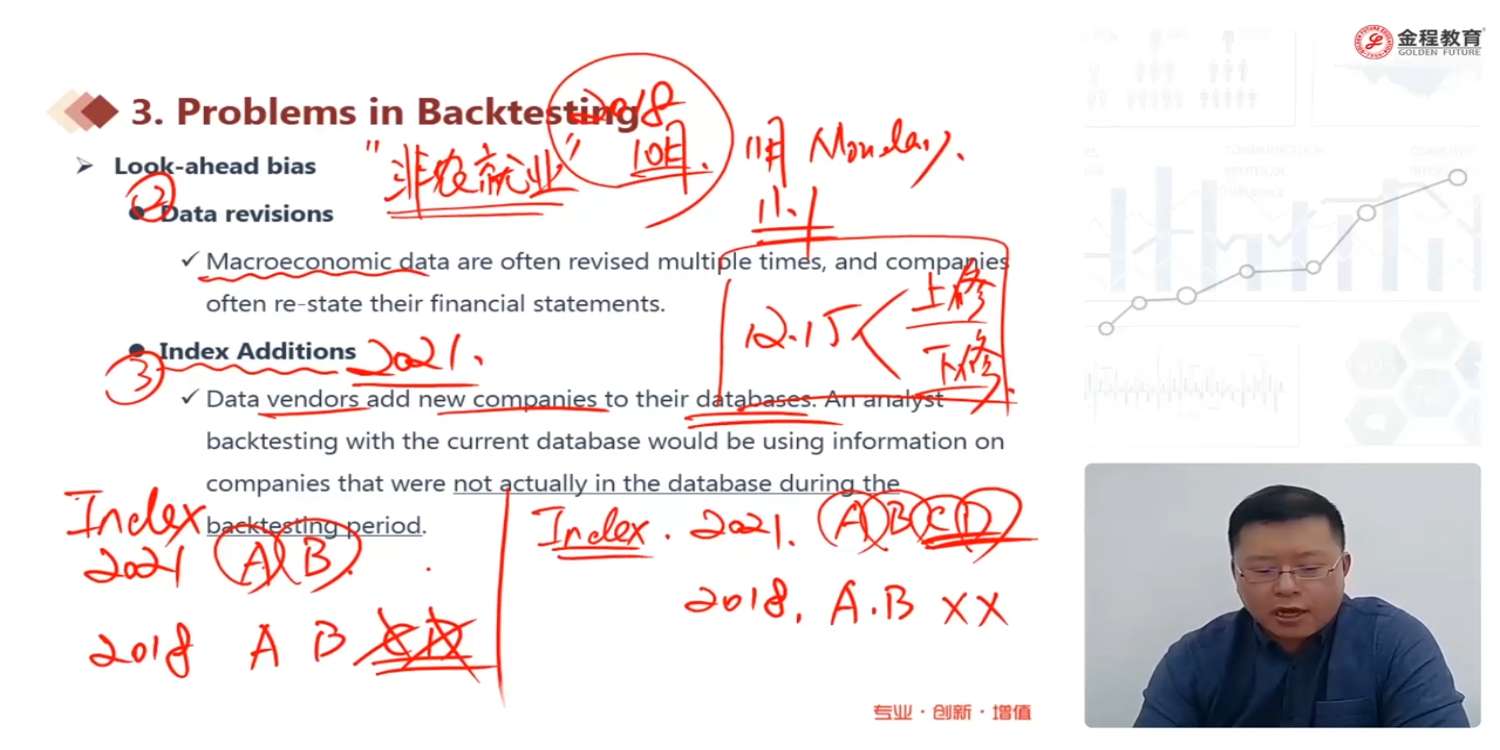 金程教育
GOLDEN FUTURE
3. Problems in Backtesting
2018
10月.
11月 Monday.
11.1
"非农就业"
Look-ahead bias
②
Data revisions
Macroeconomic data are often revised multiple times, and companies
often re-state their financial statements.
12.15
上修
下修
③
Index Additions
2021.
Data vendors add new companies to their databases. An analyst
backtesting with the current database would be using information on
companies that were not actually in the database during the
backtesting period.
Index
2021 A B
2018 A B
Index. 2021. A B C D
2018. A.B X X
专业·创新·增值